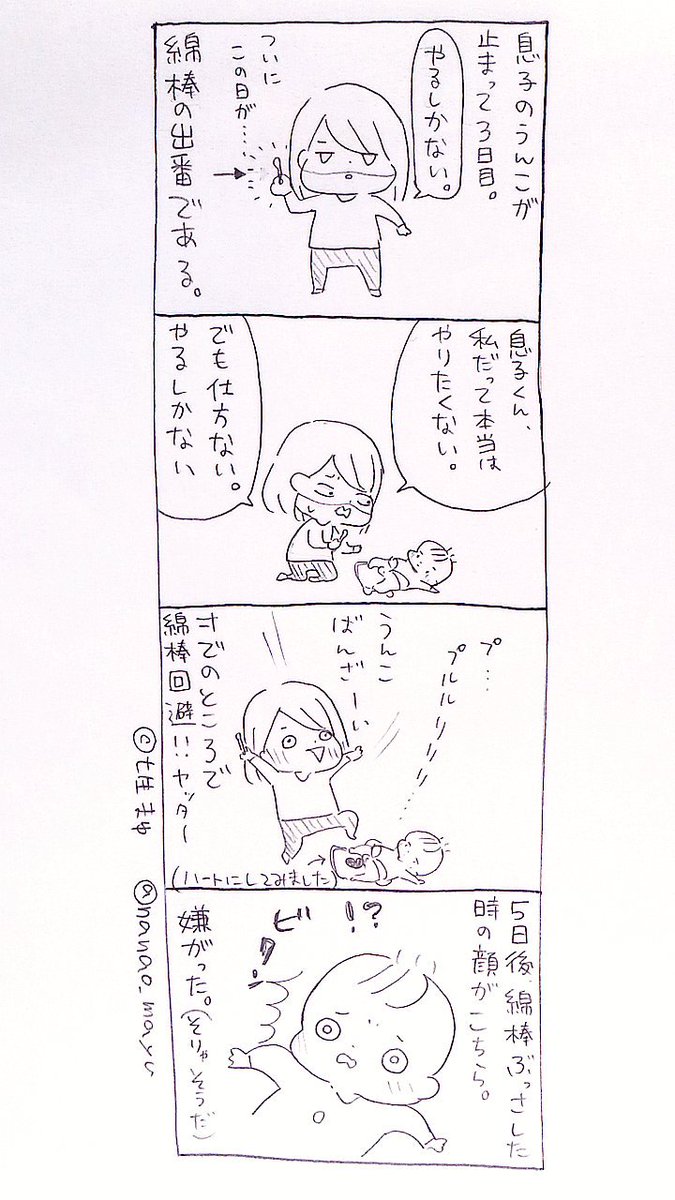 息子のうんこが
止まって3日目。
やるしかない。
ついに
この日が…
綿棒の出番である。
息子くん、
私だって本当は
やりたくない。
でも仕方ない。
やるしかない
プ…
プルルリリリ……
うんこ
ばんざーい
すでのところで
綿棒回避!!ヤッター
(ハートにしてみました)
5日後、綿棒ぶっさした
時の顔がこちら。
!?
ビクッ
嫌がった。(そりゃそうだ)
@nanao_mayu